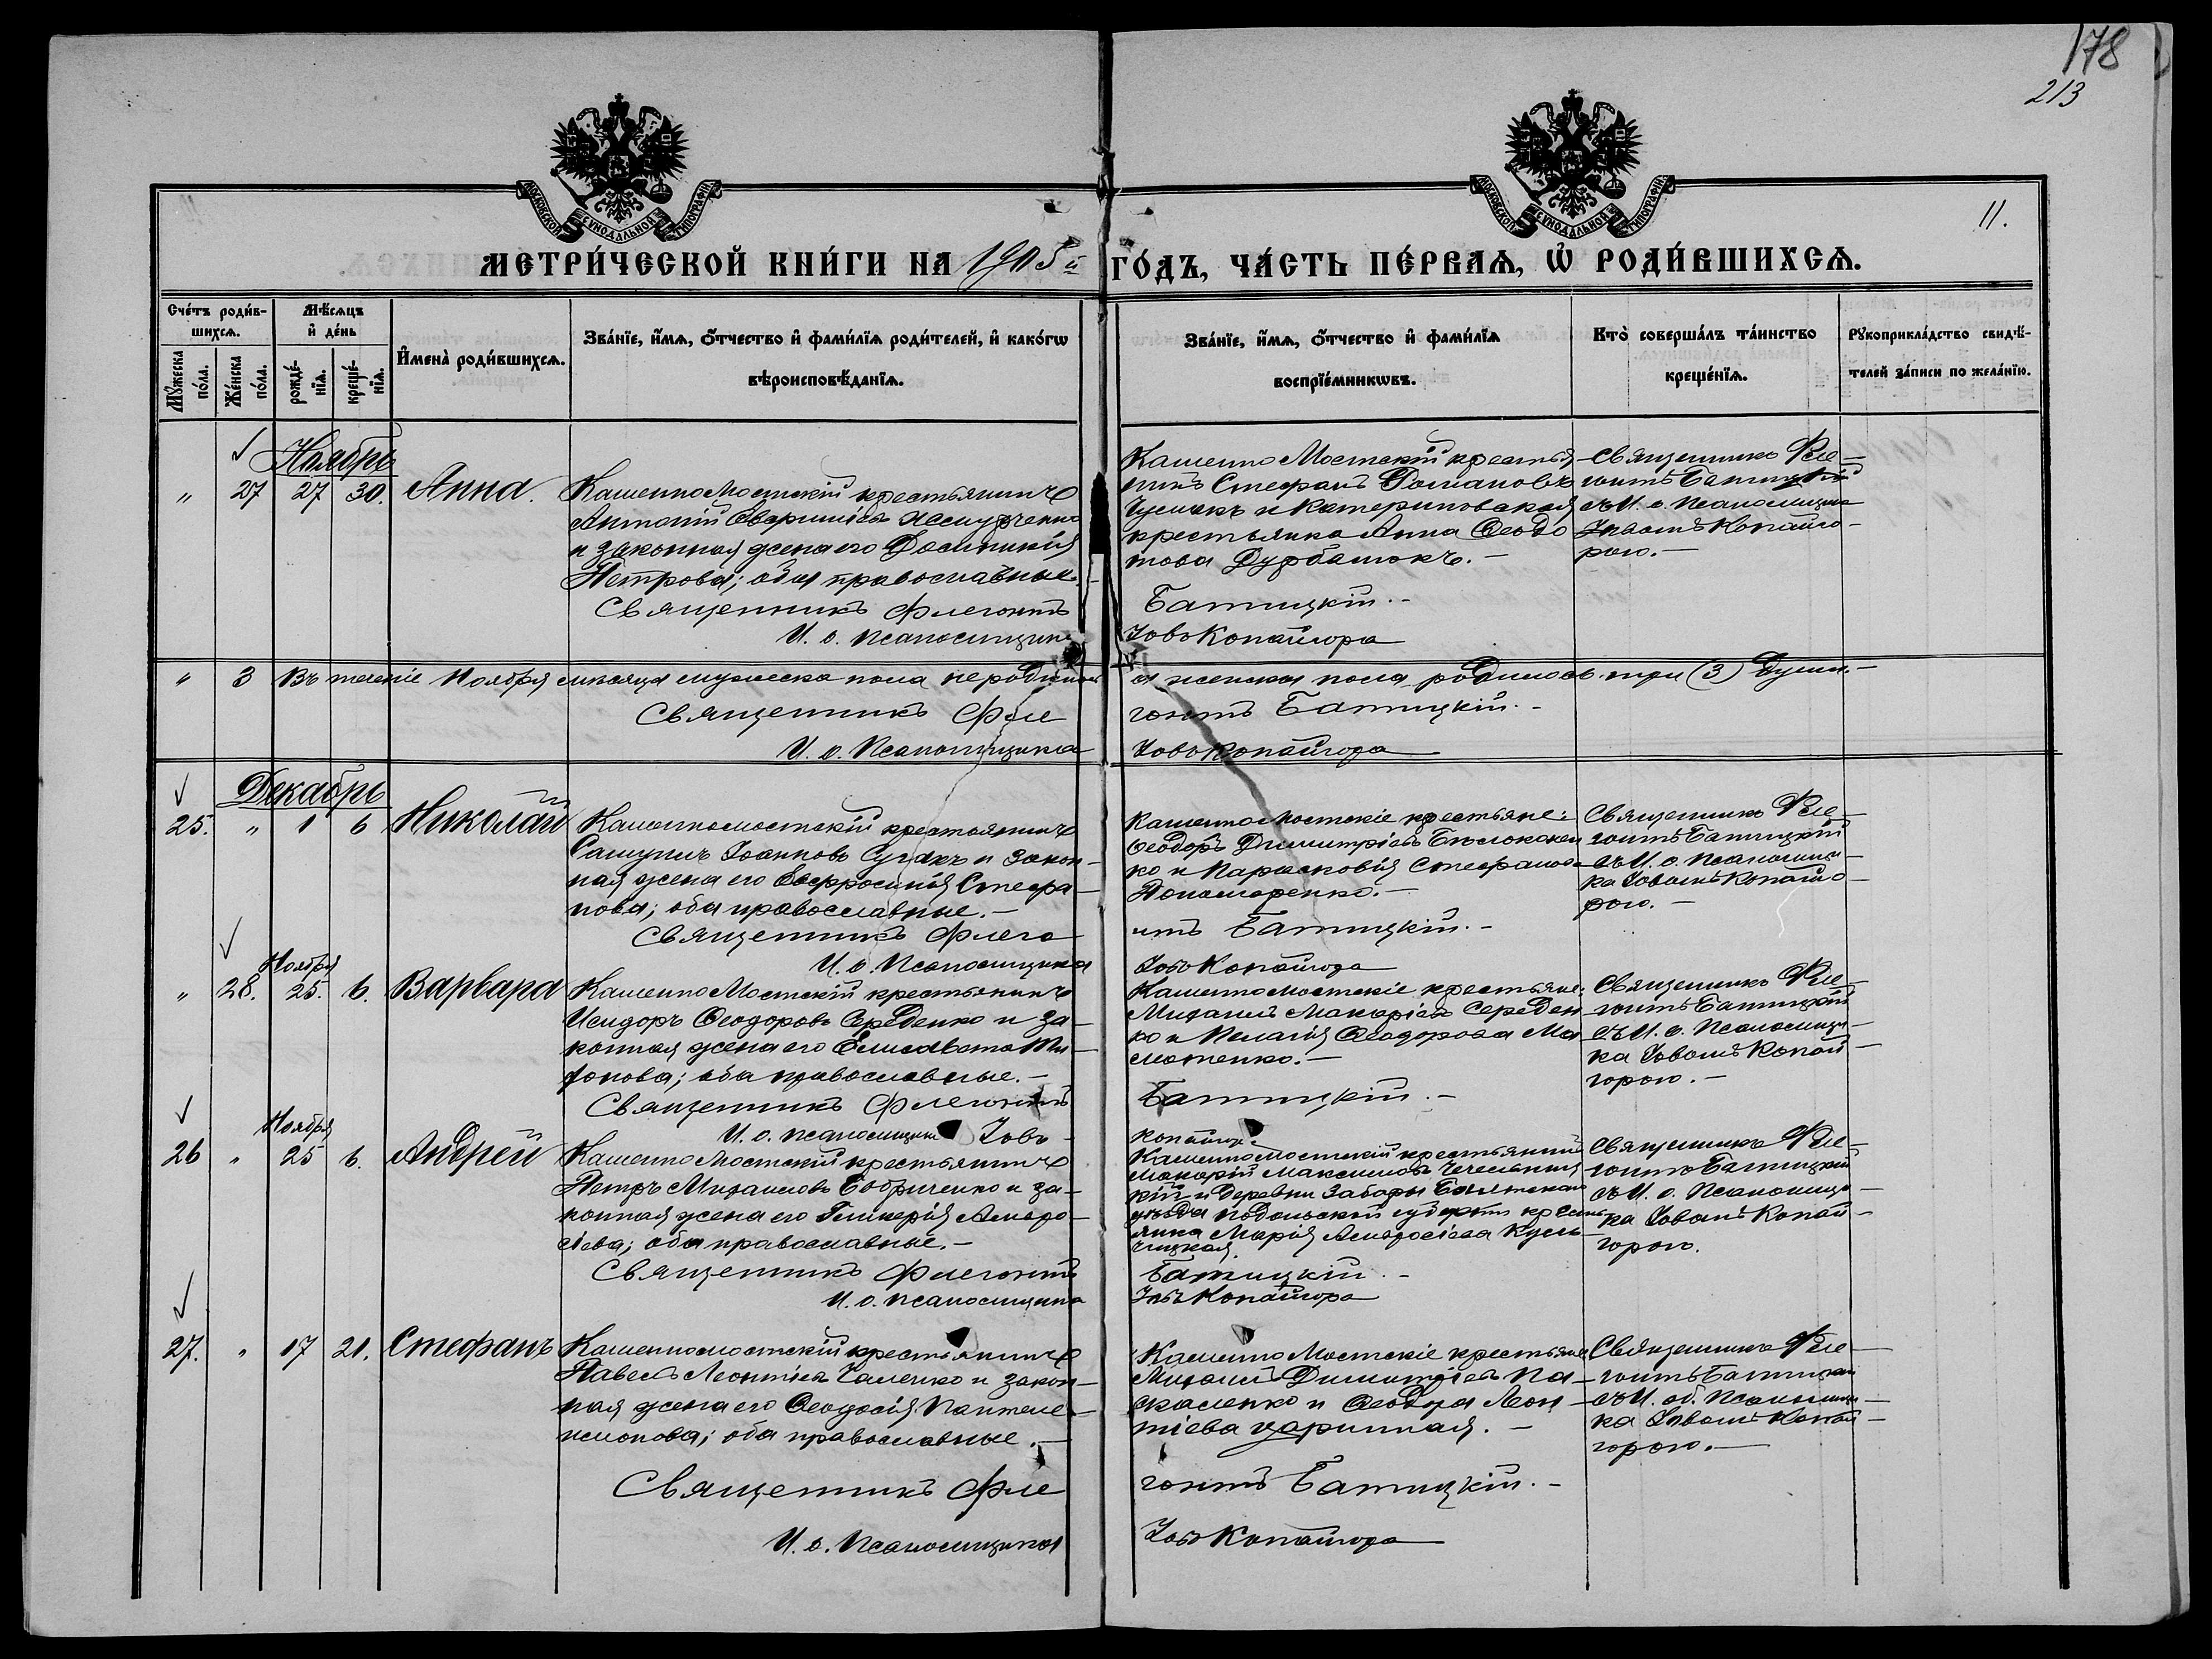 178
213
МОСКОВСКОЙ СѴНОДАЛЬНОЙ ТИПОГРАФІИ
МОСКОВСКОЙ СѴНОДАЛЬНОЙ ТИПОГРАФІИ
11.
МЕТРИ́ЧЕСКОЙ КНИ́ГИ НА 1905й ГО́ДЪ, ЧА́СТЬ ПЕ́РВАѦ, Ѡ҆ РОДИ́ВШИХСѦ.
Сче́тъ роди́в-
шихсѧ.
Мѣ́сѧцъ
и҆ де́нь
Мꙋ́жеска по́ла.
Же́нска по́ла.
рожде́-нїѧ.
креще́-нїѧ.
И҆мена̀ роди́вшихсѧ.
Зва́нїе, и҆́мѧ, ѻ҆́тчество и҆ фами́лїѧ роди́телей, и҆ како́гѡ
вѣроисповѣ́данїѧ.
Зва́нїе, и҆́мѧ, ѻ҆́тчество и҆ фами́лїѧ
воспрїе́мникѡвъ.
Кто̀ соверша́лъ та́инство
креще́нїѧ.
Рꙋкоприкла́дство свидѣ́-
телей за́писи по жела́нїю.
Ноябрь
" 27 27 30. Анна.
Каменно Мостскій крестьянинъ
Антоній
и законная жена его Домникія
Петрова; оба православные.
Священникъ Флегонтъ
И. о. псаломщика
Каменно Мостскій крестья-
нинъ Стефанъ Романовъ
и Катериновская
крестьянка Анна Ѳеодо
това Дурбатокъ.-
Батицкій.-
Іовъ Копайгора
Священникъ Фле-
гонтъ Батицкій
съ И. о. псаломщика
Іовомъ Копайго-
рою.-
" 3 Въ теченіе Ноября мѣсяца мужеска пола не родилось, а женска пола родилось три (3) души.-
Священникъ Флегонтъ Батицкій.-
И. о. Псаломщика Іовъ Копайгора
Декабрь
25. " 1 6 Николай
Каменномостскій крестьянинъ
Самуилъ Іоанновъ Сугакъ и закон-
ная жена его Евфросинія Стефа-
нова; оба православные.-
Священникъ Флего
И. о. Псаломщика
Каменномостскіе крестьяне:
Ѳеодоръ Димитріевъ Бѣлоконен
ко и Парасковія Стефанова
Пономаренко.-
нтъ Батицкій.-
Іовъ Копайгора
Священникъ Фле-
гонтъ Батицкій
съ И. о. Псаломщи-
ка Іовомъ Копайго-
рою.-
Ноября
" 28. 25. 6. Варвара
Каменно Мостскій крестьянинъ
Исидоръ Ѳеодоровъ Середенко и за-
конная жена его Елисавета Ти-
хонова; оба православные.-
Священникъ Флегонтъ
И. о. псаломщика Іовъ
Каменномостскіе крестьяне:
Михаилъ Макаріевъ Середен
ко и Пелагія Ѳеодорова Ма
тенко.-
Батицкій.-
Копайгора
Священникъ Фле-
гонтъ Батицкій
съ И. о. Псаломщи-
ка Іовомъ Копай-
горою.-
Ноября
26 " 25 6. Андрей
Каменно Мостскій крестьянинъ
Петръ Михаиловъ Бобриченко и за-
конная жена его Гликерія Амвро-
сіева; оба православные.-
Священникъ Флегонтъ
И. о. псаломщика
Каменномостскій крестьянинъ
Макарій Максимовъ
кій и деревни Забары Балтскаго
уѣзда Подольской губерніи кресть
янка Марія Амвросіева Кузь
чицкая.
Батицкій.-
Іовъ Копайгора
Священникъ Фле-
гонтъ Батицкій
съ И. о. Псаломщи-
ка Іовомъ Копай-
горою.
27. " 17 21. Стефанъ
Каменномостскій крестьянинъ
Павелъ Леонтіевъ Галенко и закон-
ная жена его Ѳеодосія Пантеле-
имонова; оба православные.-
Священникъ Фле
И. о. Псаломщика
Каменно Мостскіе крестьяне
Михаилъ Димитріевъ Па-
скаленко и Ѳеодора Леон-
тіева Царинная.-
гонтъ Батицкій.-
Іовъ Копайгора
Священникъ Фле-
гонтъ Батицкій
съ И. об. Псаломщи-
ка Іовомъ Копай-
горою.-